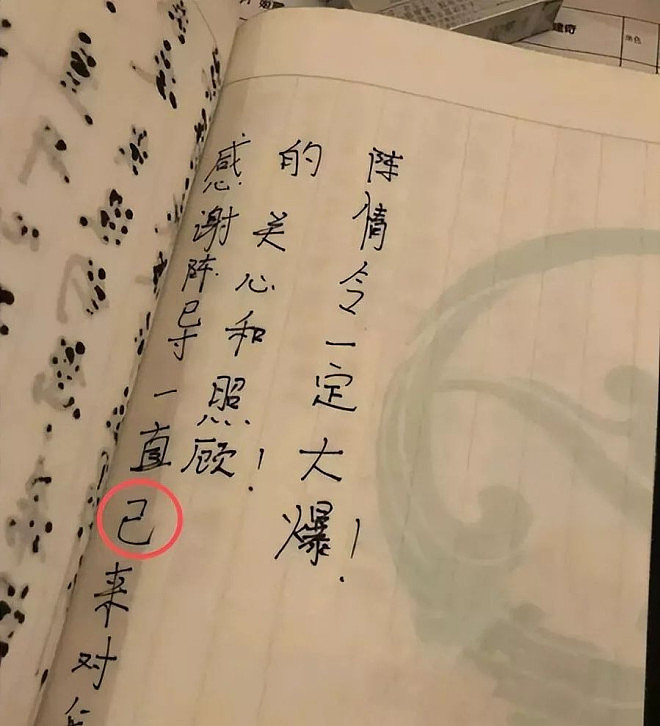 感谢陈导一直己来对
的关心和照顾！
陈情令一定大爆！